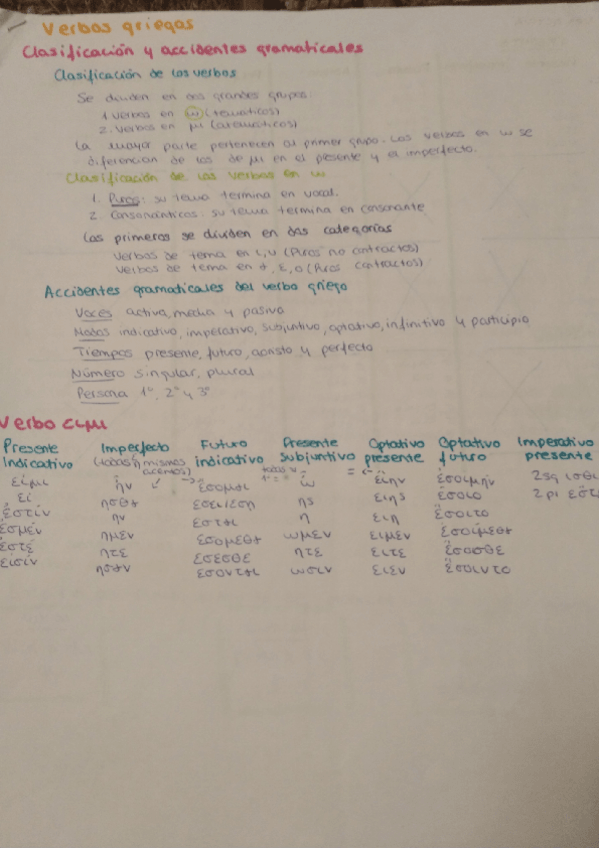 Verbos griegos
Clasificación y accidentes gramaticales
Clasificación de los verbos
Se dividen en dos grandes grupos:
1. Verbos en ω (temáticos)
2. Verbos en μι (atemáticos)
La mayor parte pertenecen al primer grupo. Los verbos en ω se
diferencian de los de μι en el presente y el imperfecto.
Clasificación de los verbos en ω
1. Puros: su tema termina en vocal.
2. Consonánticos: su tema termina en consonante
Los primeros se dividen en dos categorías
Verbos de tema en ι, υ (Puros no contractos)
Verbos de tema en α, ε, ο (Puros contractos)
Accidentes gramaticales del verbo griego
Voces activa, media y pasiva
Modos indicativo, imperativo, subjuntivo, optativo, infinitivo y participio
Tiempos presente, futuro, aoristo y perfecto
Número singular, plural
Persona 1º, 2º y 3º
Verbo ειμι
Presente Indicativo Imperfecto (todas η mismos acentos) Futuro indicativo Presente subjuntivo Optativo presente Optativo futuro Imperativo presente
εἰμι ἠν ἐσομαι ὠ εἰην ἐσοιμην 2sg ισθι
εἰ ησθα εσει/εση ης ειης ἐσοιο 2pl
ἐστίν ην εσται η ειη ἐσοιτο
ἐσμέν ημεν εσομεθα ωμεν ειμεν ἐσοιμεθα
ἐστέ ητε εσεσθε ητε ειτε ἐσοισθε
εἰσίν ησαν εσονται ωσιν ειεν ἐσοιντο